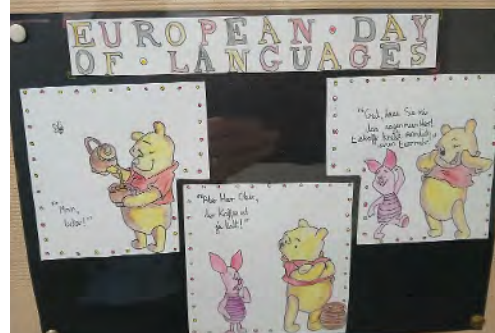 EUROPEAN · DAY
OF · LANGUAGES
"Aber Herr Ober,
der Kaffee ist
ja kalt!"
"Gut, dass Sie mir
das sagen mein Herr!
kostet nämlich
einen Euro mehr."